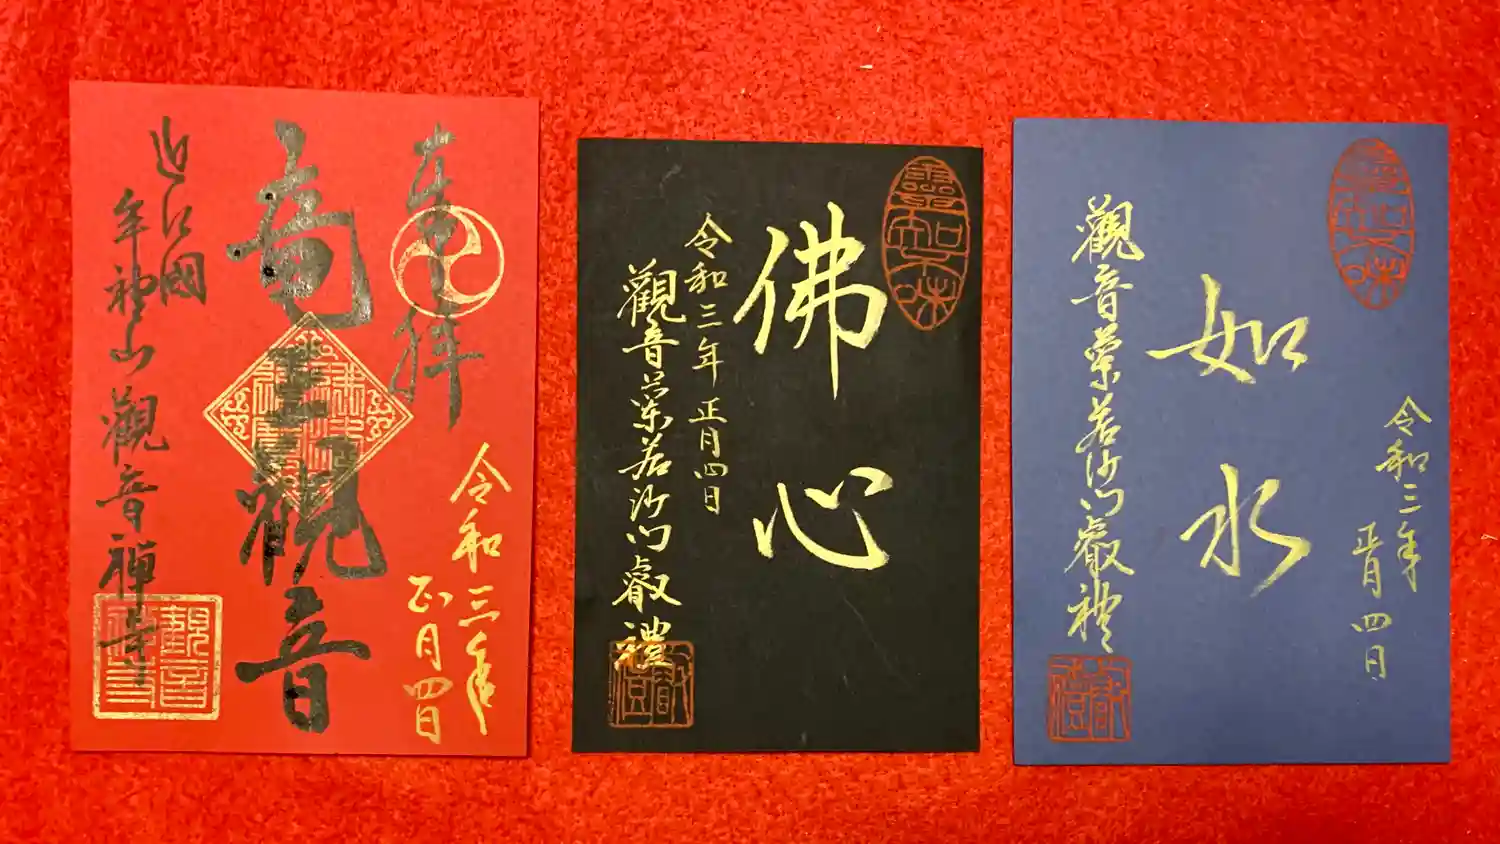 奉拝
令和三年
正月四日
竜王観音
近江國
牟禮山觀音禅寺
佛心
令和三年 正月四日
觀音蘭若沙門叡禮
如水
令和三年
正月四日
觀音蘭若沙門叡禮